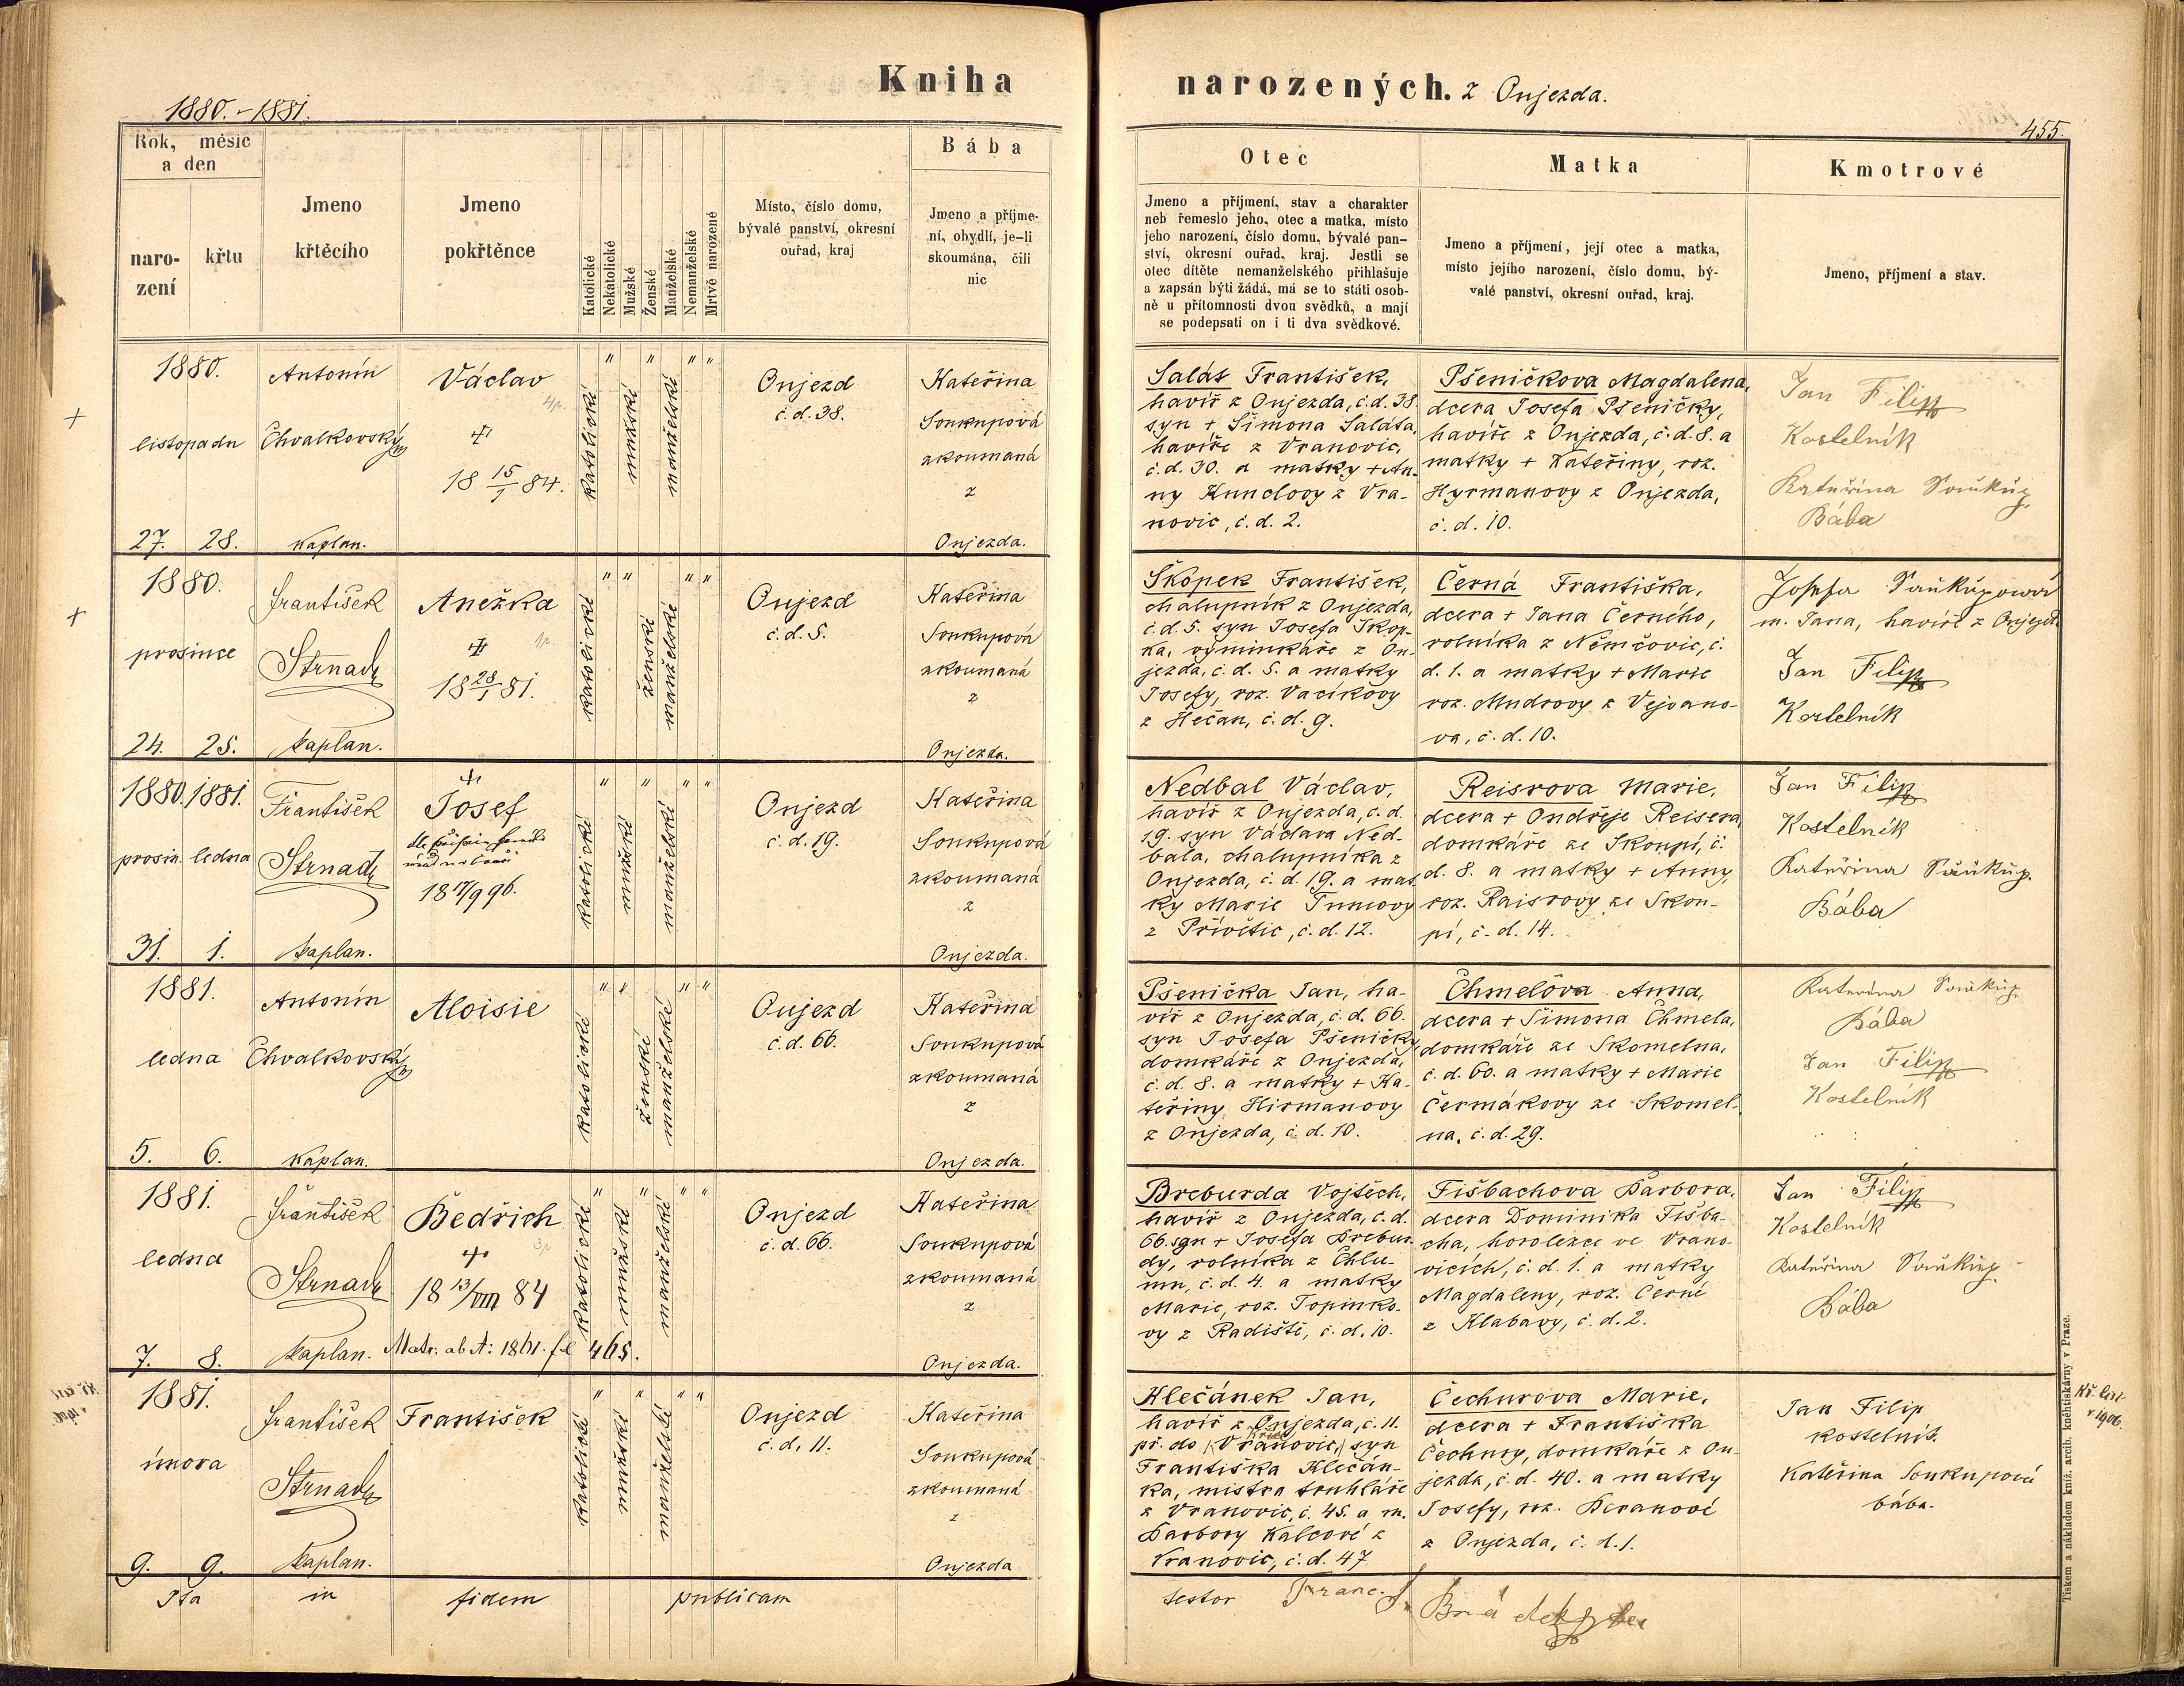 Kniha narozených. z Onjezda.
1880.-1881.
455.
Rok, měsíc
a den
naro-
zení
křtu
Jmeno
křtěcího
Jmeno
pokřtěnce
Katolické
Nekatolické
Mužské
Ženské
Manželské
Nemanželské
Mrtvě narozené
Místo, číslo domu,
bývalé panství, okresní
ouřad, kraj
Bába
Jmeno a příjme-
ní, obydlí, je-li
skoumána, čili
nic
Otec
Jmeno a příjmení, stav a charakter
neb řemeslo jeho, otec a matka, místo
jeho narození, číslo domu, bývalé pan-
ství, okresní ouřad, kraj. Jestli se
otec dítěte nemanželského přihlašuje
a zapsán býti žádá, má se to státi osob-
ně u přítomnosti dvou svědků, a mají
se podepsati on i ti dva svědkové.
Matka
Jmeno a příjmení, její otec a matka,
místo jejího narození, číslo domu, bý-
valé panství, okresní ouřad, kraj.
Kmotrové
Jmeno, příjmení a stav.
1880.
listopadu
27. 28.
Antonín
Chvalkovský
Kaplan.
Václav
4p.
18 15/1 84.
katolické
" mužské " manželské " "
Onjezd
č.d. 38.
Kateřina
Soukupová
zkoumaná
z
Onjezda.
Salát František,
havíř z Onjezda, č.d. 38.
syn + Šimona Saláta,
havíře z Vranovic,
č.d. 30. a matky + An-
ny Kunclovy z Vra-
novic, č.d. 2.
Pšeničkova Magdalena,
dcera Josefa Pšeničky,
havíře z Onjezda, č.d. 8. a
matky + Kateřiny, roz.
Hyrmanovy z Onjezda,
č.d. 10.
Jan Filip
Kostelník
Kateřina Soukup.
Bába
1880.
prosince
24. 25.
František
Strnad
kaplan.
Anežka
1p.
18 28/1 81.
katolické
" " ženské manželské " "
Onjezd
č.d. 5.
Kateřina
Soukupová
zkoumaná
z
Onjezda.
Škopek František,
chalupník z Onjezda,
č.d. 5. syn Josefa Skop-
ka, výminkáře z On-
jezda, č.d. 5. a matky
Josefy, roz. Vacíkovy
z Hečan, č.d. 9.
Černá Františka,
dcera + Jana Černého,
rolníka z Němčovic, č.
d. 1. a matky + Marie
roz. Mudrovy z Vejvano-
va, č.d. 10.
Josefa Soukupowá
m. Jana, havíře z Onjezda
Jan Filip
Kostelník
1880. 1881.
prosin. ledna
31. 1.
František
Strnad
kaplan.
Josef
18 17/9 96.
katolické
" mužské " manželské " "
Onjezd
č.d. 19.
Kateřina
Soukupová
zkoumaná
z
Onjezda.
Nedbal Václav,
havíř z Onjezda, č.d.
19. syn Václava Ned-
bala, chalupníka z
Onjezda, č.d. 19. a mat-
ky Marie Tumovy
z Přívětic, č.d. 12.
Reisrova Marie,
dcera + Ondřeje Reisera,
domkáře ze Skoupí, č.
d. 8. a matky + Anny,
roz. Raisrovy ze Skou-
pí, č.d. 14.
Jan Filip
Kostelník
Kateřina Soukup.
Bába
1881.
ledna
5. 6.
Antonín
Chvalkovský
Kaplan.
Aloisie
katolické
" " ženské manželské " "
Onjezd
č.d. 66.
Kateřina
Soukupová
zkoumaná
z
Onjezda.
Pšenička Jan, ha-
víř z Onjezda, č.d. 66.
syn Josefa Pšeničky,
domkáře z Onjezda,
č.d. 8. a matky + Ka-
teřiny Hirmanovy
z Onjezda, č.d. 10.
Chmelova Anna,
dcera + Šimona Chmela,
domkáře ze Skomelna,
č.d. 60. a matky + Marie
Čermákovy ze Skomel-
na, č.d. 29.
Kateřina Soukup.
Bába
Jan Filip
Kostelník
1881.
ledna
7. 8.
František
Strnad
kaplan.
Bedřich
3p
18 13/VIII 84
Matr. ab A: 1861. fol 465.
katolické
" mužské " manželské " "
Onjezd
č.d. 66.
Kateřina
Soukupová
zkoumaná
z
Onjezda.
Breburda Vojtěch,
havíř z Onjezda, č.d.
66. syn + Josefa Brebur-
dy, rolníka z Chlu-
mu, č.d. 4. a matky
Marie, roz. Topinko-
vy z Radiště, č.d. 10.
Fišbachova Barbora,
dcera Dominika Fišba-
cha, horolezce ve Vrano-
vicích, č.d. 1. a matky
Magdaleny, roz. Černé
z Klabavy, č.d. 2.
Jan Filip
Kostelník
Kateřina Soukup.
Bába
1881.
února
9. 9.
František
Strnad
kaplan.
František
katolické
" mužské " manželské " "
Onjezd
č.d. 11.
Kateřina
Soukupová
zkoumaná
z
Onjezda
Hlečánek Jan,
havíř z Onjezda, č. 11.
př. do (Vranovic,) syn
Františka Klečán-
ka, mistra truhláře
z Vranovic, č. 45. a m.
Barbory Kalcové z
Vranovic, č.d. 47
Čechurova Marie,
dcera + Františka
Čechury, domkáře z On-
jezda, č.d. 40. a matky
Josefy, roz. Beranové
z Onjezda, č.d. 1.
Jan Filip
kostelník.
Kateřina Soukupová
bába.
Kř. list
r 1906.
Ita in fidem publicam testor Franc. J.
Tiskem a nákladem kníž. arcib. kněhtiskárny v Praze.